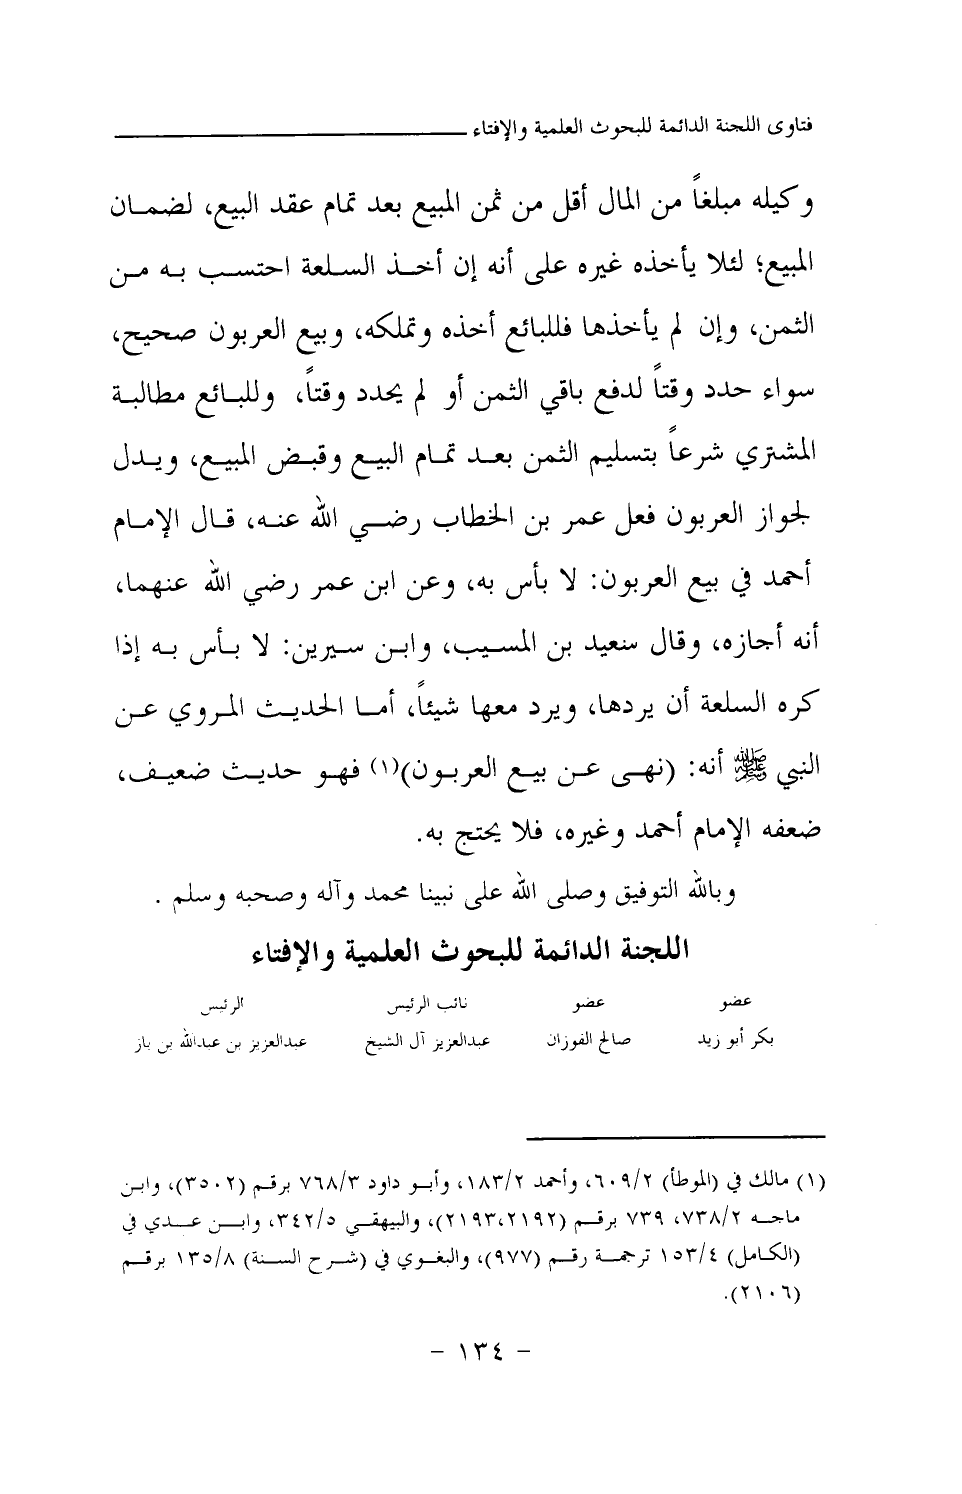 فتاوى اللجنة الدائمة للبحوث العلمية والإفتاء
وكيله مبلغاً من المال أقل من ثمن المبيع بعد تمام عقد البيع، لضمان
المبيع؛ لئلا يأخذه غيره على أنه إن أخذ السلعة احتسب به من
الثمن، وإن لم يأخذها فللبائع أخذه وتملكه، وبيع العربون صحيح،
سواء حدد وقتاً لدفع باقي الثمن أو لم يحدد وقتاً، وللبائع مطالبة
المشتري شرعاً بتسليم الثمن بعد تمام البيع وقبض المبيع، ويدل
لجواز العربون فعل عمر بن الخطاب رضي الله عنه، قال الإمام
أحمد في بيع العربون: لا بأس به، وعن ابن عمر رضي الله عنهما،
أنه أجازه، وقال سعيد بن المسيب، وابن سيرين: لا بأس به إذا
كره السلعة أن يردها، ويرد معها شيئاً، أما الحديث المروي عن
النبي ﷺ أنه: (نهى عن بيع العربون)(١) فهو حديث ضعيف،
ضعفه الإمام أحمد وغيره، فلا يحتج به.
وبالله التوفيق وصلى الله على نبينا محمد وآله وصحبه وسلم .
اللجنة الدائمة للبحوث العلمية والإفتاء
عضو عضو نائب الرئيس الرئيس
بكر أبو زيد صالح الفوزان عبدالعزيز آل الشيخ عبدالعزيز بن عبدالله بن باز
(١) مالك في (الموطأ) ٦٠٩/٢، وأحمد ١٨٣/٢، وأبو داود ٧٦٨/٣ برقم (٣٥٠٢)، وابن
ماجه ٧٣٨/٢، ٧٣٩ برقم (٢١٩٣،٢١٩٢)، والبيهقي ٣٤٢/٥، وابن عدي في
(الكامل) ١٥٣/٤ ترجمة رقم (٩٧٧)، والبغوي في (شرح السنة) ١٣٥/٨ برقم
(٢١٠٦).
- ١٣٤ -